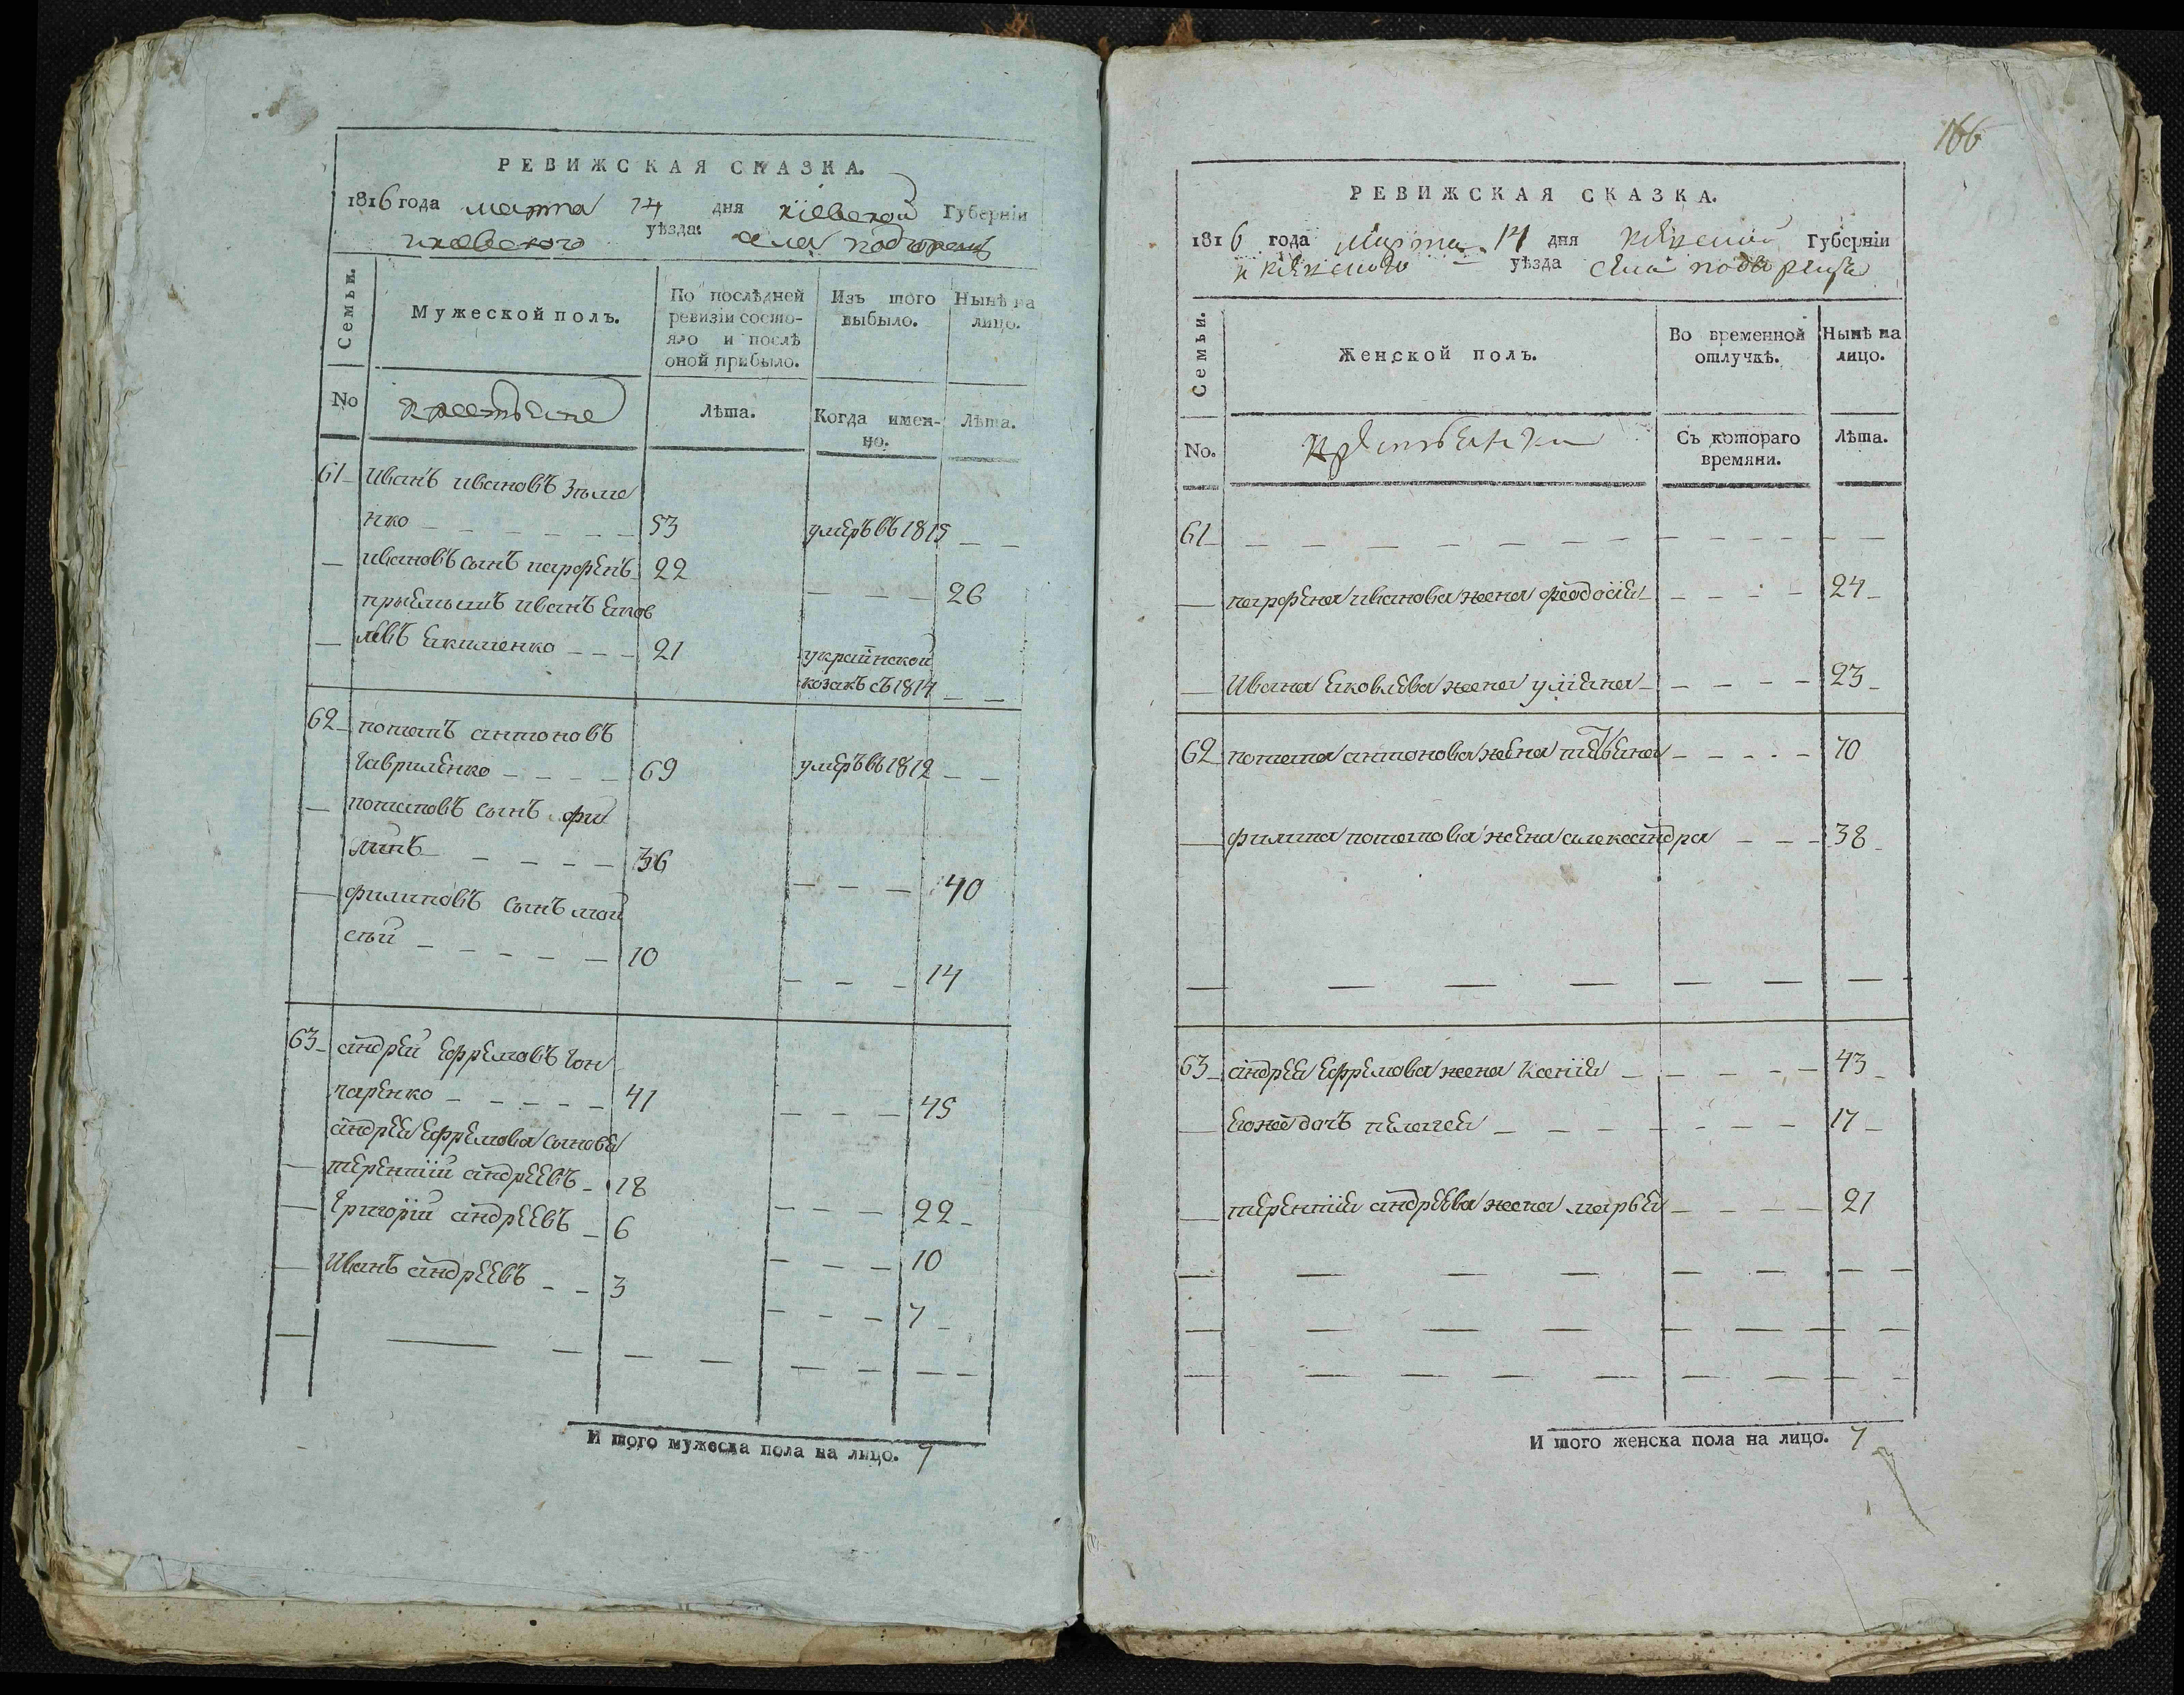 РЕВИЖСКАЯ СКАЗКА.
1816 года марта 14 дня кіевской Губерніи
и кіевского уѣзда: села подгорецъ
Семьи.
Мужеской полъ.
По послѣдней ревизіи состо-
яло и послѣ оной прибыло.
Изъ того выбыло.
Нынѣ на лицо.
No
крестьяне
Лѣта.
Когда имен-
но.
Лѣта.
61 Иванъ ивановъ
нко 53 умеръ въ 1815
ивановъ сынъ парфенъ 22 26
приемышъ иванъ еков
левъ екименко 21 украинской
козакъ съ 1814
62 потапъ антоновъ
гавриленко 69 умеръ въ 1812
потаповъ сынъ фи
липъ 36 40
филиповъ сынъ мои
сѣй 10 14
63 андрей ефремовъ гон
чаренко 41 45
андрея ефремова сыновя
терентій андреевъ 18 22
григорій андреевъ 6 10
Иванъ андреевъ 3 7
И того мужеска пола на лицо. 7
166
РЕВИЖСКАЯ СКАЗКА.
1816 года Марта 14 дня кіевской Губерніи
и кіевского уѣзда села подгорецъ
Семьи.
Женской полъ.
Во временной отлучкѣ.
Нынѣ на лицо.
No.
крестьянки
Съ котораго времяни.
Лѣта.
61
парфена иванова жена феодосія 24
Ивана яковлева жена уліяна 23
62 потапа антонова жена 70
филипа потапова жена александра 38
63 андрея ефремова жена ксенія 43
его же дочь пелагея 17
терентія андреева жена марья 21
И того женска пола на лицо. 7